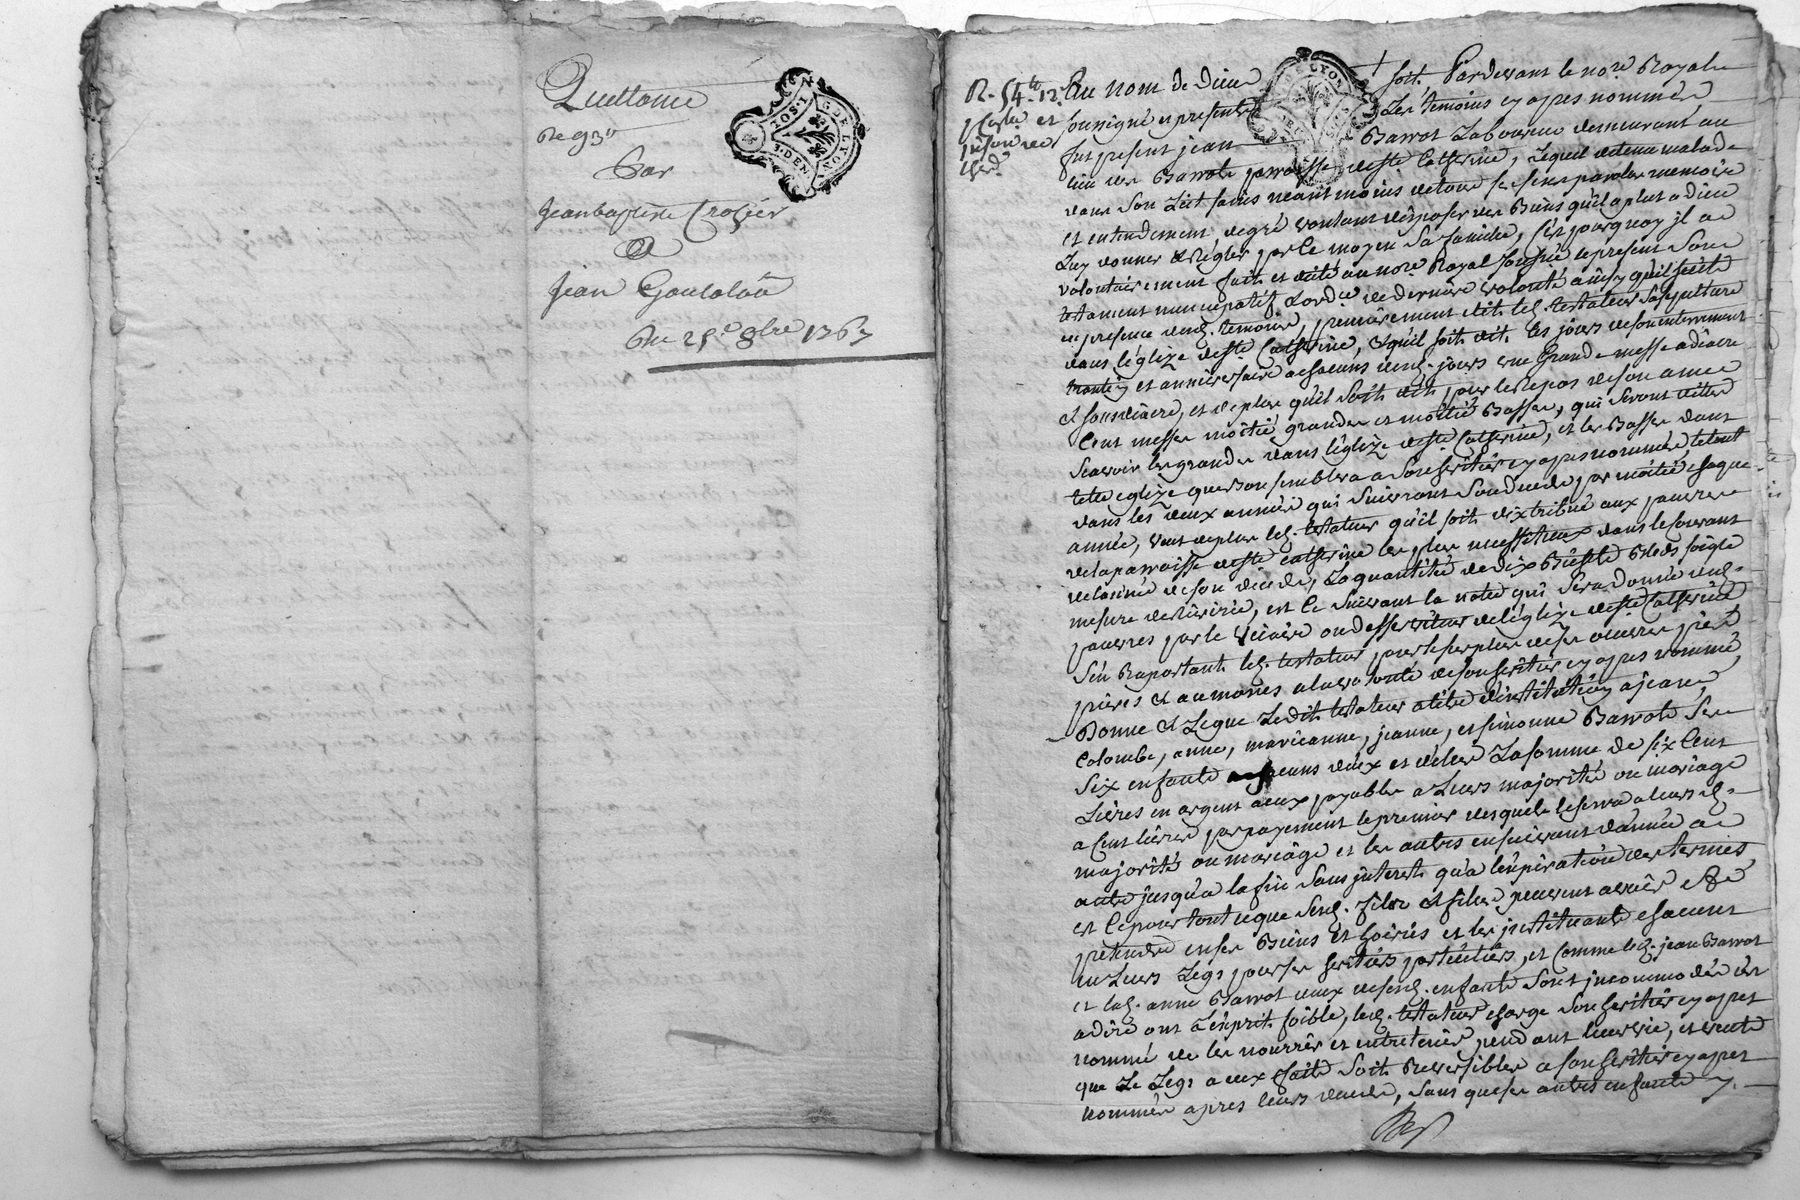 Quittance
De 93ᵗᵗ
Par
Jean baptiste Crozier
A
Jean Goutalan
Du 25ᵉ 8bre 1767
1 SOL
3. DEN
G. DE LYON
R. 54ᵗᵗ 12
Au nom de Dieu soit, Pardevant le noʳᵉ Royal
soussigné et presents Les temoins cy apres nommés
fut present jean Barrot Laboureur demeurant au
lieu de Barrot parroisse de ste Catherine, Lequel detenu malade
dans son Lict sains neantmoins de tous ses sens parolle memoire
et entendement de gré voulant disposer des Biens qu'il a plut a dieu
Luy donner & Régler par Ce moyen sa famille, C'est pourquoy jl a
volontairement fait et dicté au noʳᵉ Royal soussigné le present son
testament nuncupatif & ordʳᵉ de derniere volonté ainsy qu'il suit
en presence desd. temoins, premierement elit led. testateur sa sepulture
dans l'églize de ste Catherine, & qu'il soit dit les jours de son enterrement
et anniversaire a chacuns desd. jours une Grande messe a diacre
& sousdiacre, et de plus qu'il soit dit pour le Repos de son ame
Cent messes moitié grandes et moitié Basses, qui seront dittes
scavoir les grandes dans l'églize de ste Catherine, et les Basses dans
telle eglize que bon semblera a son heritier cy apres nommé le tout
dans les deux années qui suivront son deceds par moitié chaque
année, veut de plus led. testateur qu'il soit distribué aux pauvres
de la parroisse de ste catherine les plus necessiteux dans le courant
de l'année de son deceds, La quantité de dix Bichets Bleds seigle
mesure de Riverie, et Ce suivant la notte qui sera donnée desd.
pauvres par le vicaire ou desserviteur de l'églize de ste Catherine
S'en Raportant led. testateur pour le surplus de ses œuvres pies
prieres & aumones a la volonté de son heritier cy apres nommé,
Donne & Legue Ledit testateur a titre d'institution a jean,
Colombe, anne, marieanne, jeanne, et simonne Barrot ses
six enfants a chacuns d'eux et d'elles La somme de six Cent
Livres en argent a eux payables a Leurs majorité ou mariage
a Cent livres par payement le premier desquels se fera a leurs d.
majorité ou mariage et les autres en suivant d'année a
autre jusqu'a la fin sans jnterets qu'a l'expiration des termes,
et Ce pour tout ce que sesd. fils & filles peuvent avoir &
pretendre en ses Biens et hoiries et les jnstituant chacuns
en Leurs Legs pour ses heritiers particuliers, et comme led. jean Barrot
et lad. anne Barrot deux de sesd. enfants sont jncommodés c'est
a dire ont l'esprit foible, led. testateur charge son heritier cy apres
nommé de les nourrir et entretenir pendant leur vie, et veut
que Le Legs a eux fait soit Reversible a son heritier cy apres
nommés apres leurs deceds, sans que ses autres enfants y.